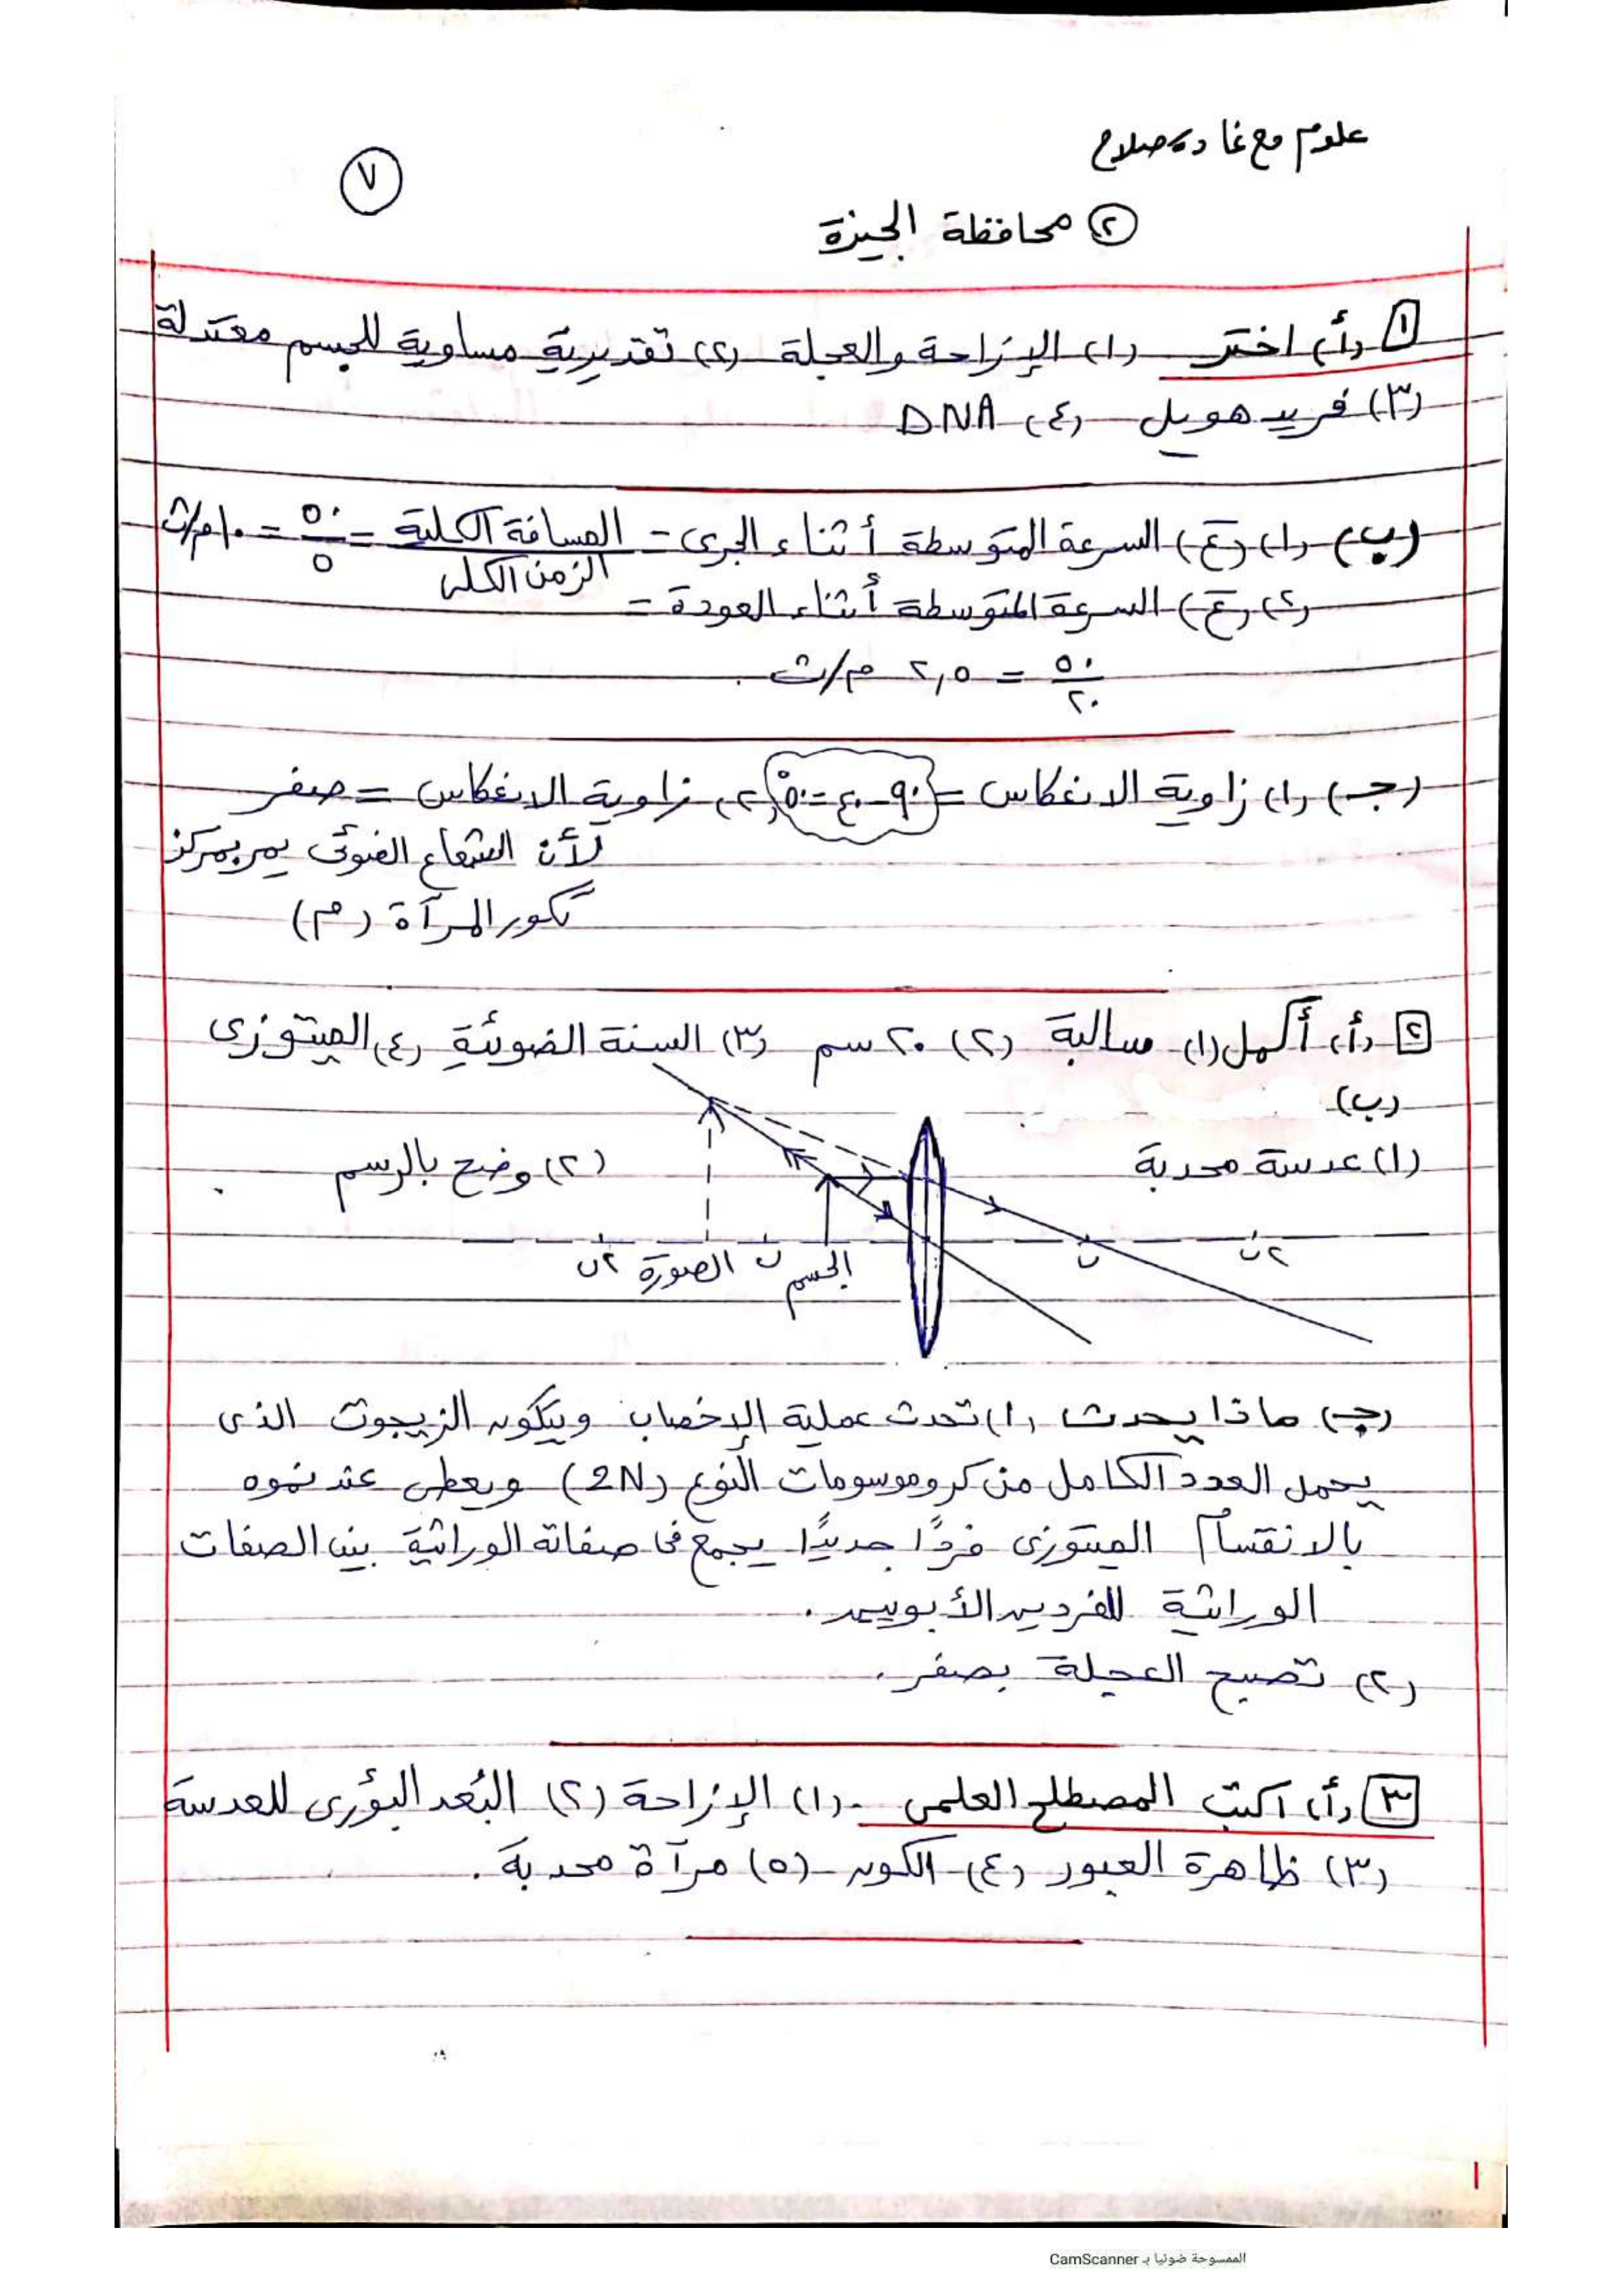 علوم مع غادة صلاح
٧
② محافظة الجيزة
١ (أ) اختر (١) الإزاحة والعجلة (٢) تقديرية مساوية للجسم معتدلة
(٣) فريد هويل (٤) DNA
(ب) (١) (ع) السرعة المتوسطة أثناء الجرى = المسافة الكلية / الزمن الكلى = ٥٠ / ٥ = ١٠ م/ث
(٢) (ع) السرعة المتوسطة أثناء العودة =
٥٠ / ٢٠ = ٢,٥ م/ث
(جـ) (١) زاوية الانعكاس = ٩٠ - ٤٠ = ٥٠° (٢) زاوية الانعكاس = صفر
لأن الشعاع الضوئى يمر بمركز
تكور المرآة (م)
٢ (أ) أكمل (١) سالبة (٢) ٢٠ سم (٣) السنة الضوئية (٤) الميتوزى
(ب)
(١) عدسة محدبة
(٢) وضح بالرسم
٢ن الصورة ن الجسم ن ٢ن
(جـ) ماذا يحدث (١) تحدث عملية الإخصاب ويتكون الزيجوت الذى
يحمل العدد الكامل من كروموسومات النوع (2N) ويعطى عند نموه
بالانقسام الميتوزى فردًا جديدًا يجمع فى صفاته الوراثية بين الصفات
الوراثية للفردين الأبويين.
(٢) تصبح العجلة بصفر.
٣ (أ) اكتب المصطلح العلمى (١) الإزاحة (٢) البُعد البؤرى للعدسة
(٣) ظاهرة العبور (٤) الكون (٥) مرآة محدبة.
الممسوحة ضوئيا بـ CamScanner